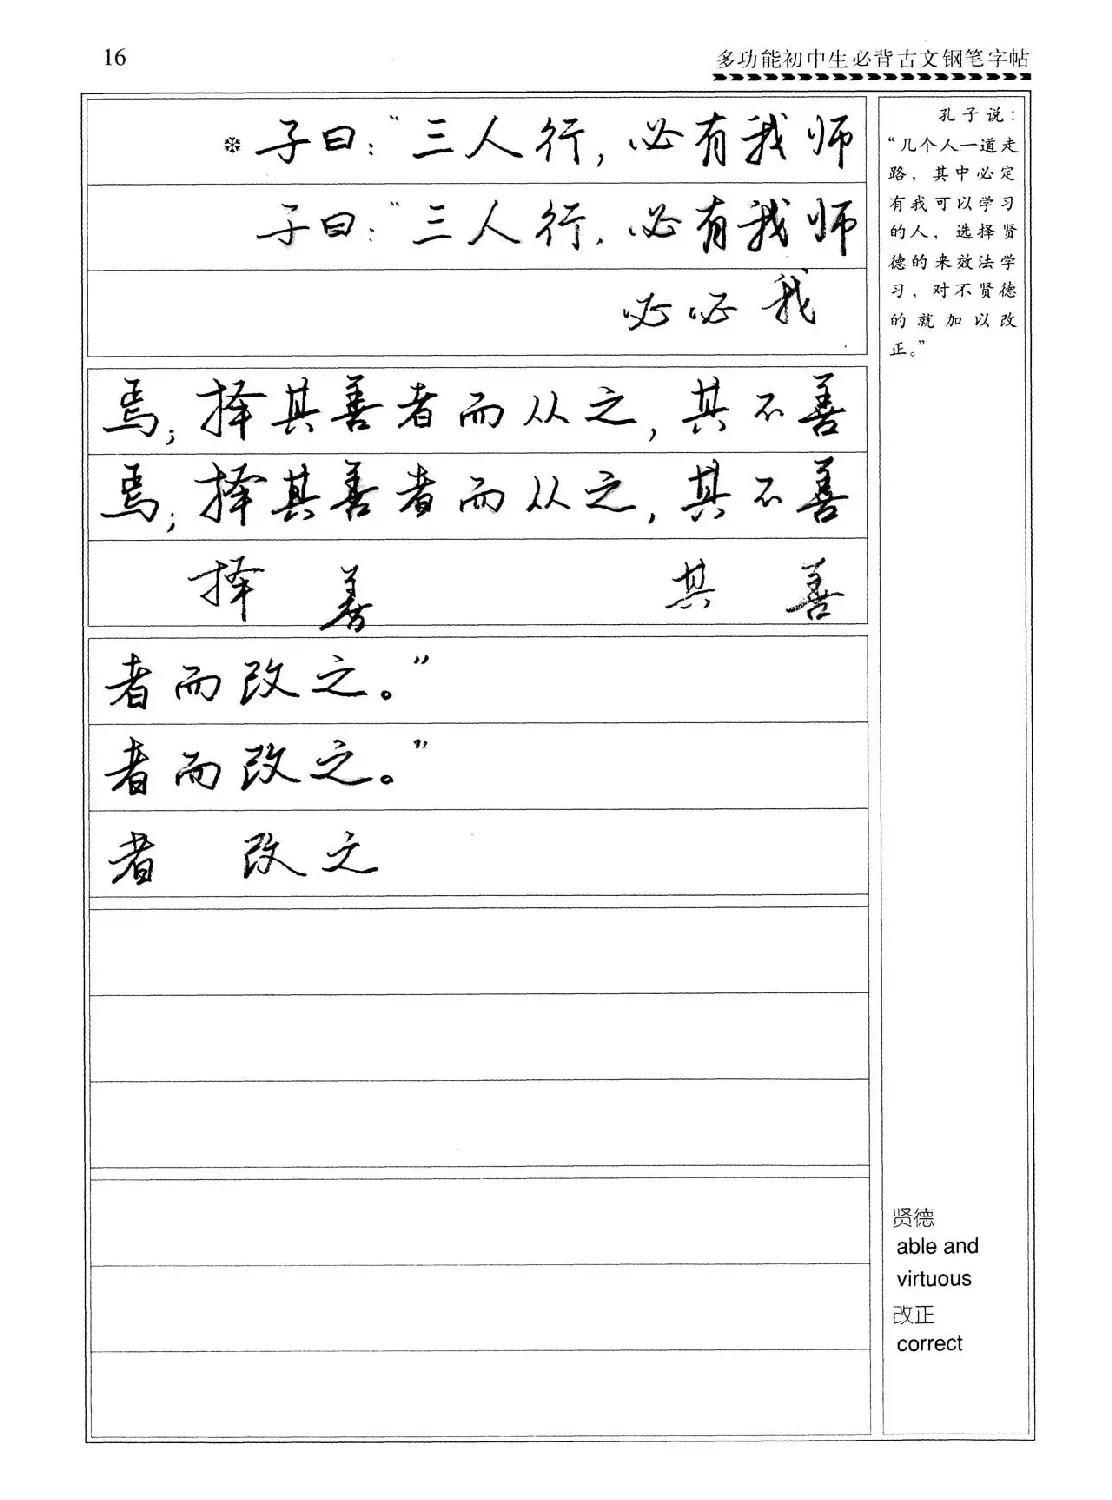 16
多功能初中生必背古文钢笔字帖
子曰：“三人行，必有我师
子曰：“三人行，必有我师
必必我
焉；择其善者而从之，其不善
焉；择其善者而从之，其不善
择 善 其 善
者而改之。”
者而改之。”
者 改之
孔子说：
“几个人一道走
路，其中必定
有我可以学习
的人，选择贤
德的来效法学
习，对不贤德
的就加以改
正。”
贤德
able and
virtuous
改正
correct